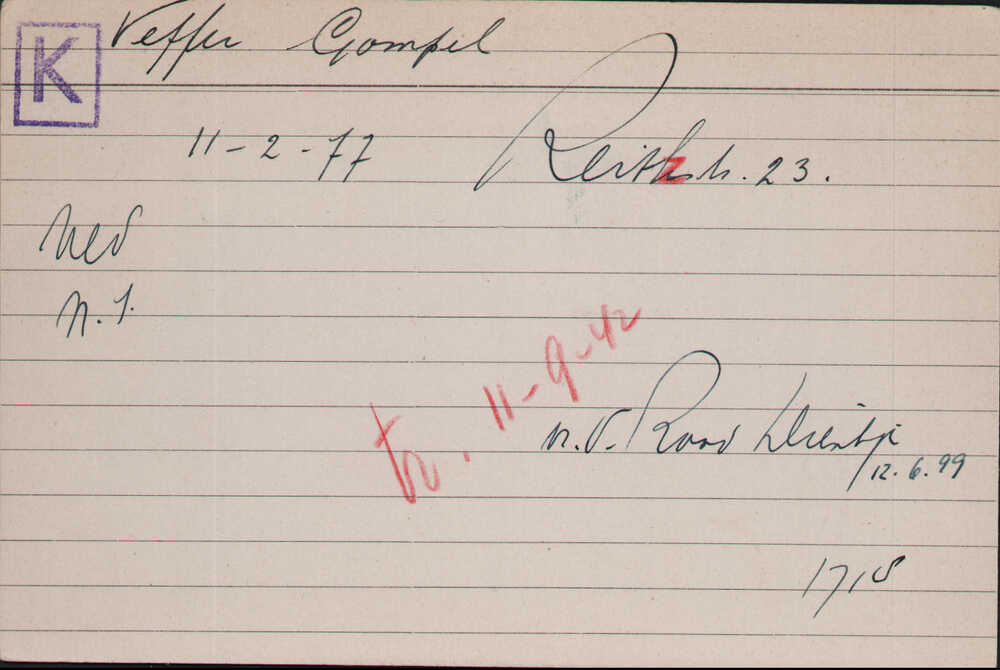 K Veffer Gompel
11-2-77 Reitzstr. 23.
Ned
N. I.
tr. 11-9-42
v. d. Rood Dientje
12.6.99